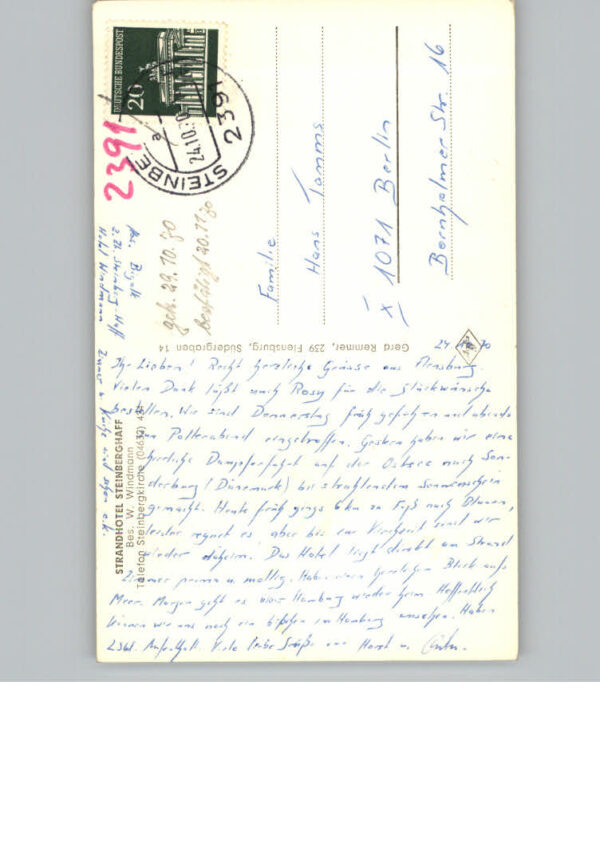 DEUTSCHE BUNDESPOST
20
STEINBE
24.10.70
2391
a
2391
Familie
Hans Tamms
X 1071 Berlin
Bornholmer Str. 16
Abs.
Hotel Windmann
gek. 29.10.70
Gerd Remmer, 239 Flensburg, Südergraben 14
STRANDHOTEL STEINBERGHAFF
Bes. W. Windmann
Telefon Steinbergkirche (04632)
24. 70
Ihr Lieben! Recht herzliche Grüsse aus Flensburg.
Vielen Dank läßt auch Rosy für die Glückwünsche
bestellen. Wir sind Donnerstag früh gefahren und abends
zum Polterabend eingetroffen. Gestern haben wir eine
herrliche Dampferfahrt auf der Ostsee nach Son-
derburg (Dänemark) bei strahlendem Sonnenschein
gemacht. Heute früh gings 6 km zu Fuß nach
leider regnet es, aber bis zur sind wir
wieder daheim. Das Hotel liegt direkt am Strand
Zimmer prima u. mollig. Haben einen herrlichen Blick aufs
Meer. Morgen geht es über Hamburg wieder heim. Hoffentlich
können wir uns noch ein bißchen in Hamburg ansehen. Haben
2 Std. Aufenthalt. Viele liebe Grüße von Horst u.